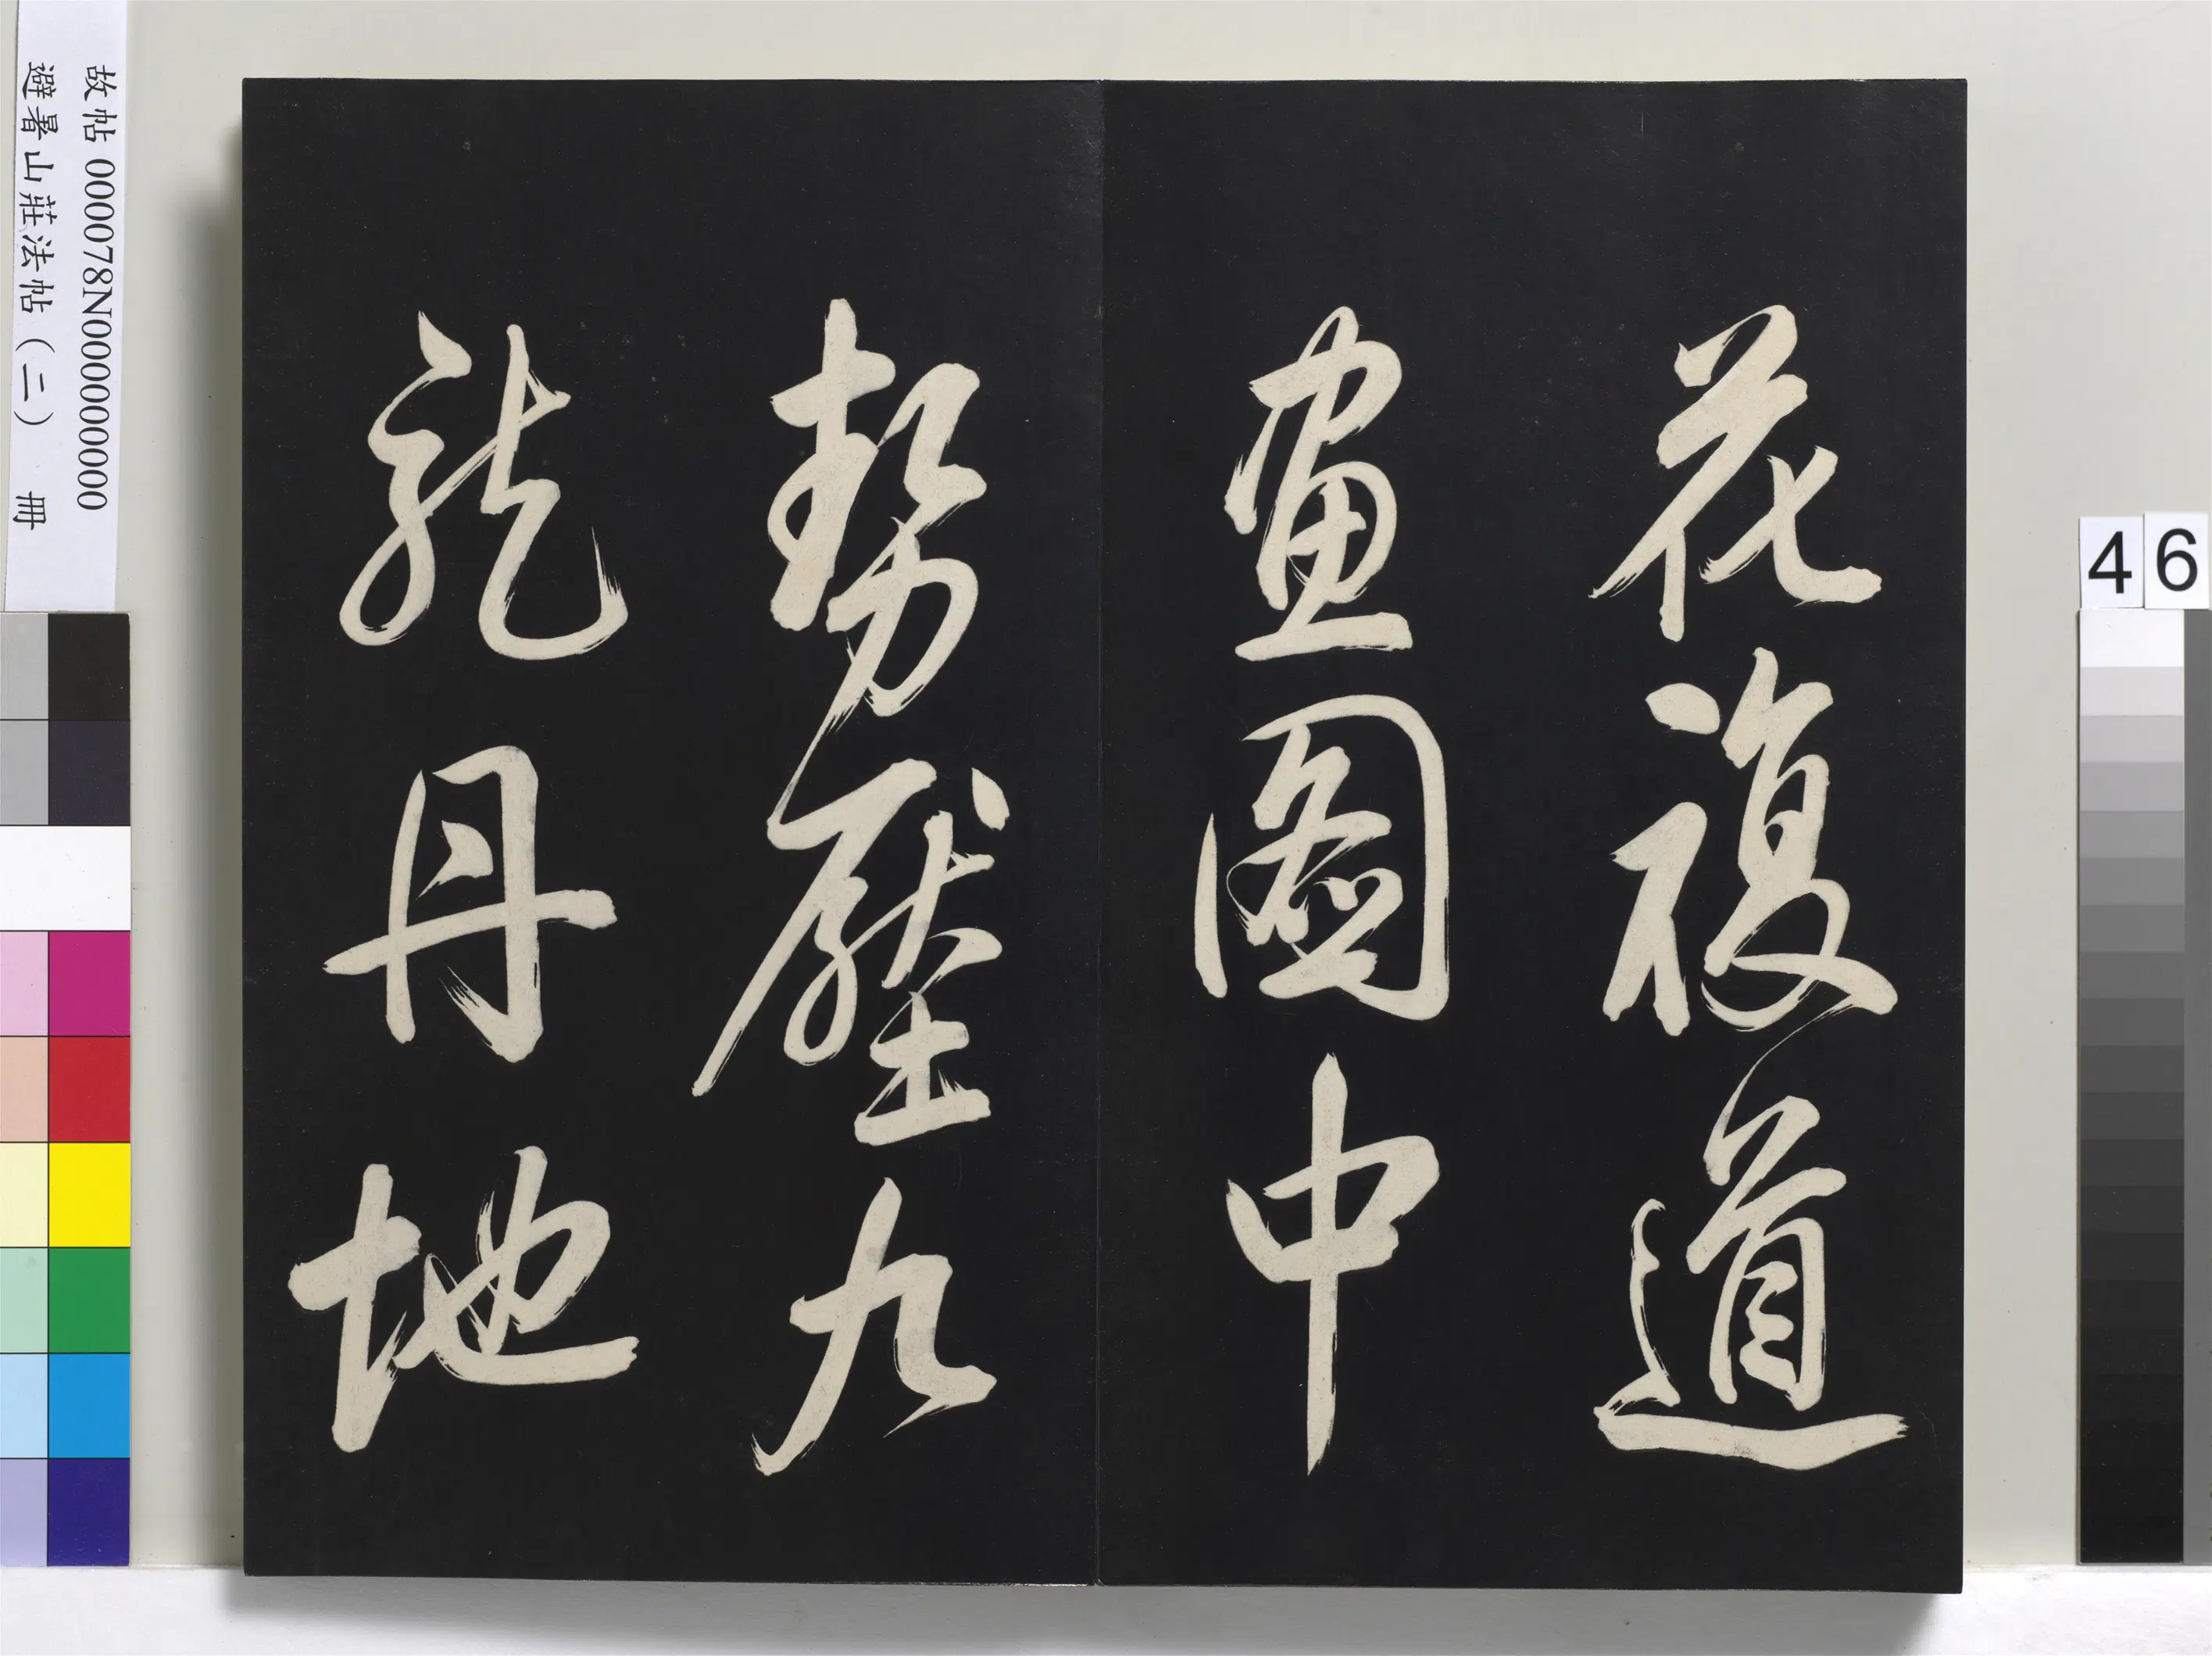 花複道
畫圖中
勢壓九
龍丹地
故帖 000078N000000000
避暑山莊法帖（二） 冊
46